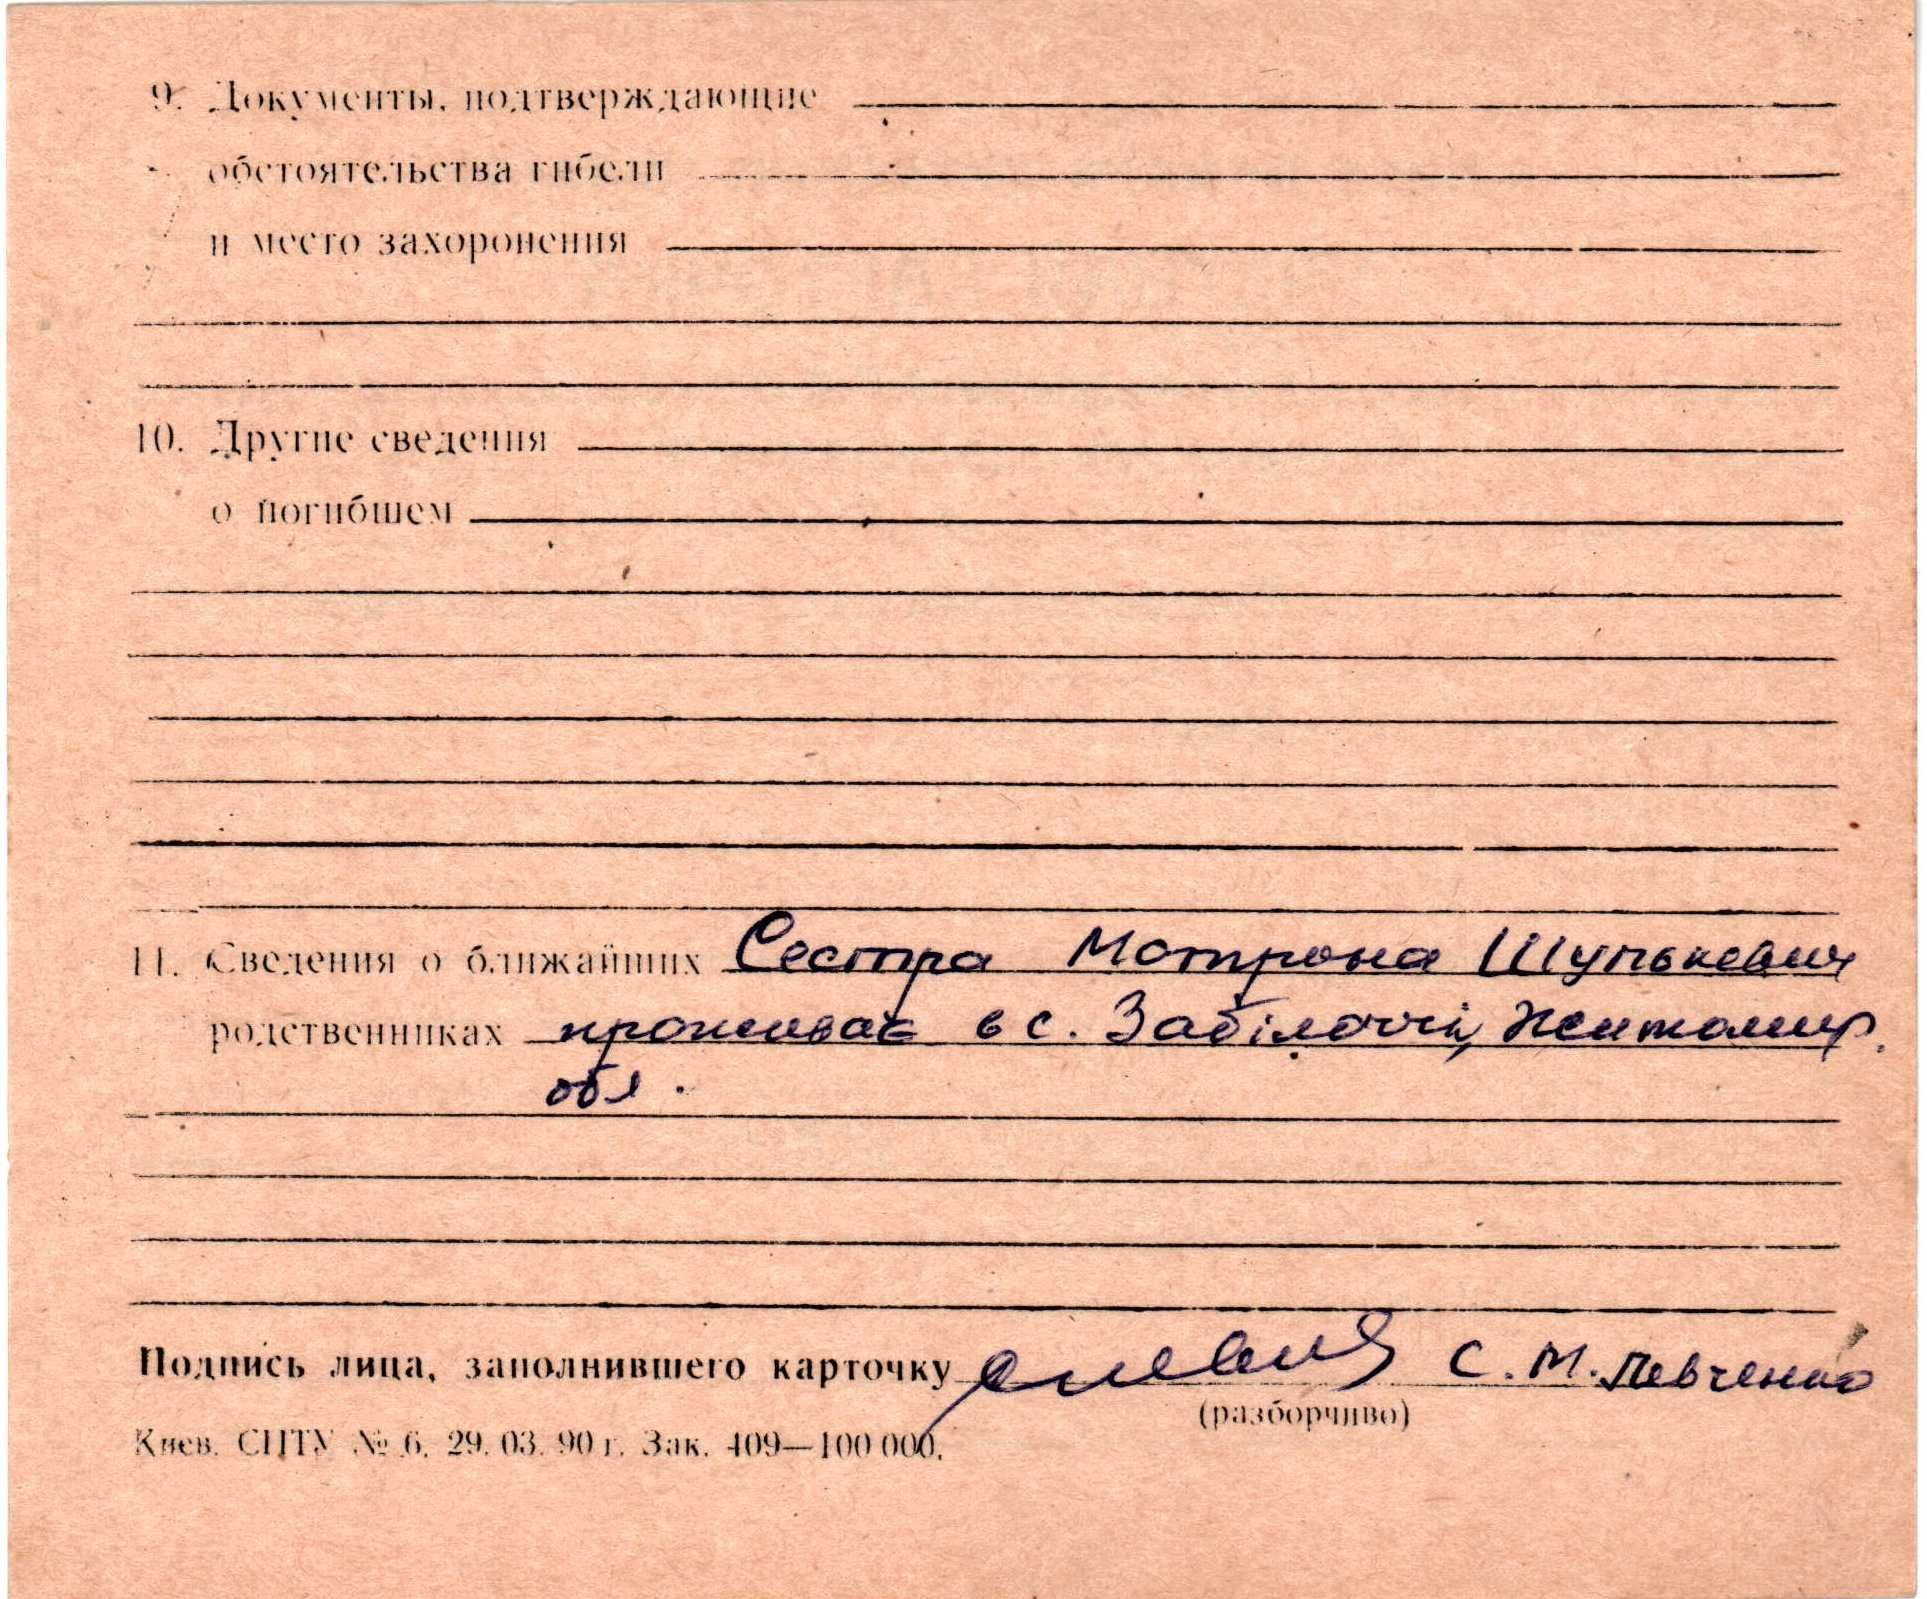 9. Документы, подтверждающие
обстоятельства гибели
и место захоронения
10. Другие сведения
о погибшем
11. Сведения о ближайших Сестра Мотрона Шупькевич
родственниках проживає в с. Забілоччі, Житомир.
обл.
Подпись лица, заполнившего карточку С. М. Левченко
(разборчиво)
Киев. СПТУ № 6. 29. 03. 90 г. Зак. 409—100 000.